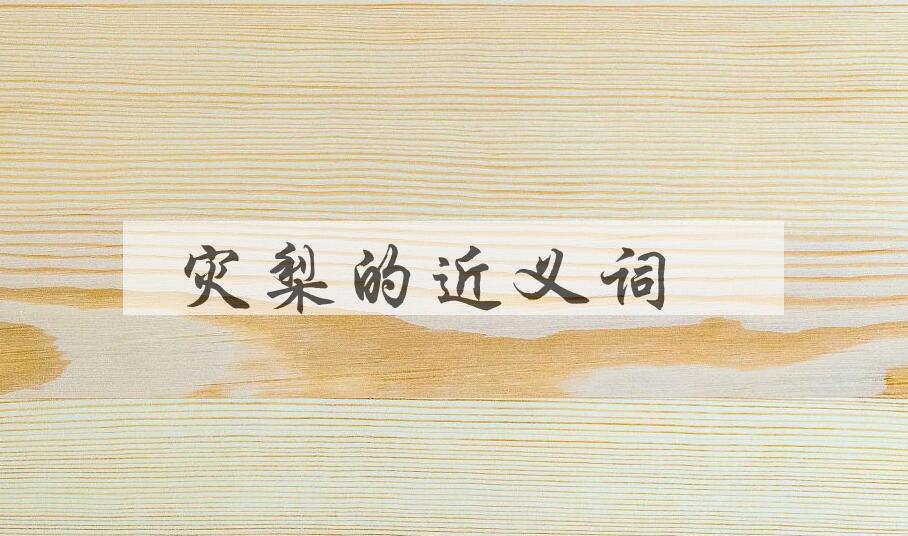 灾梨的近义词